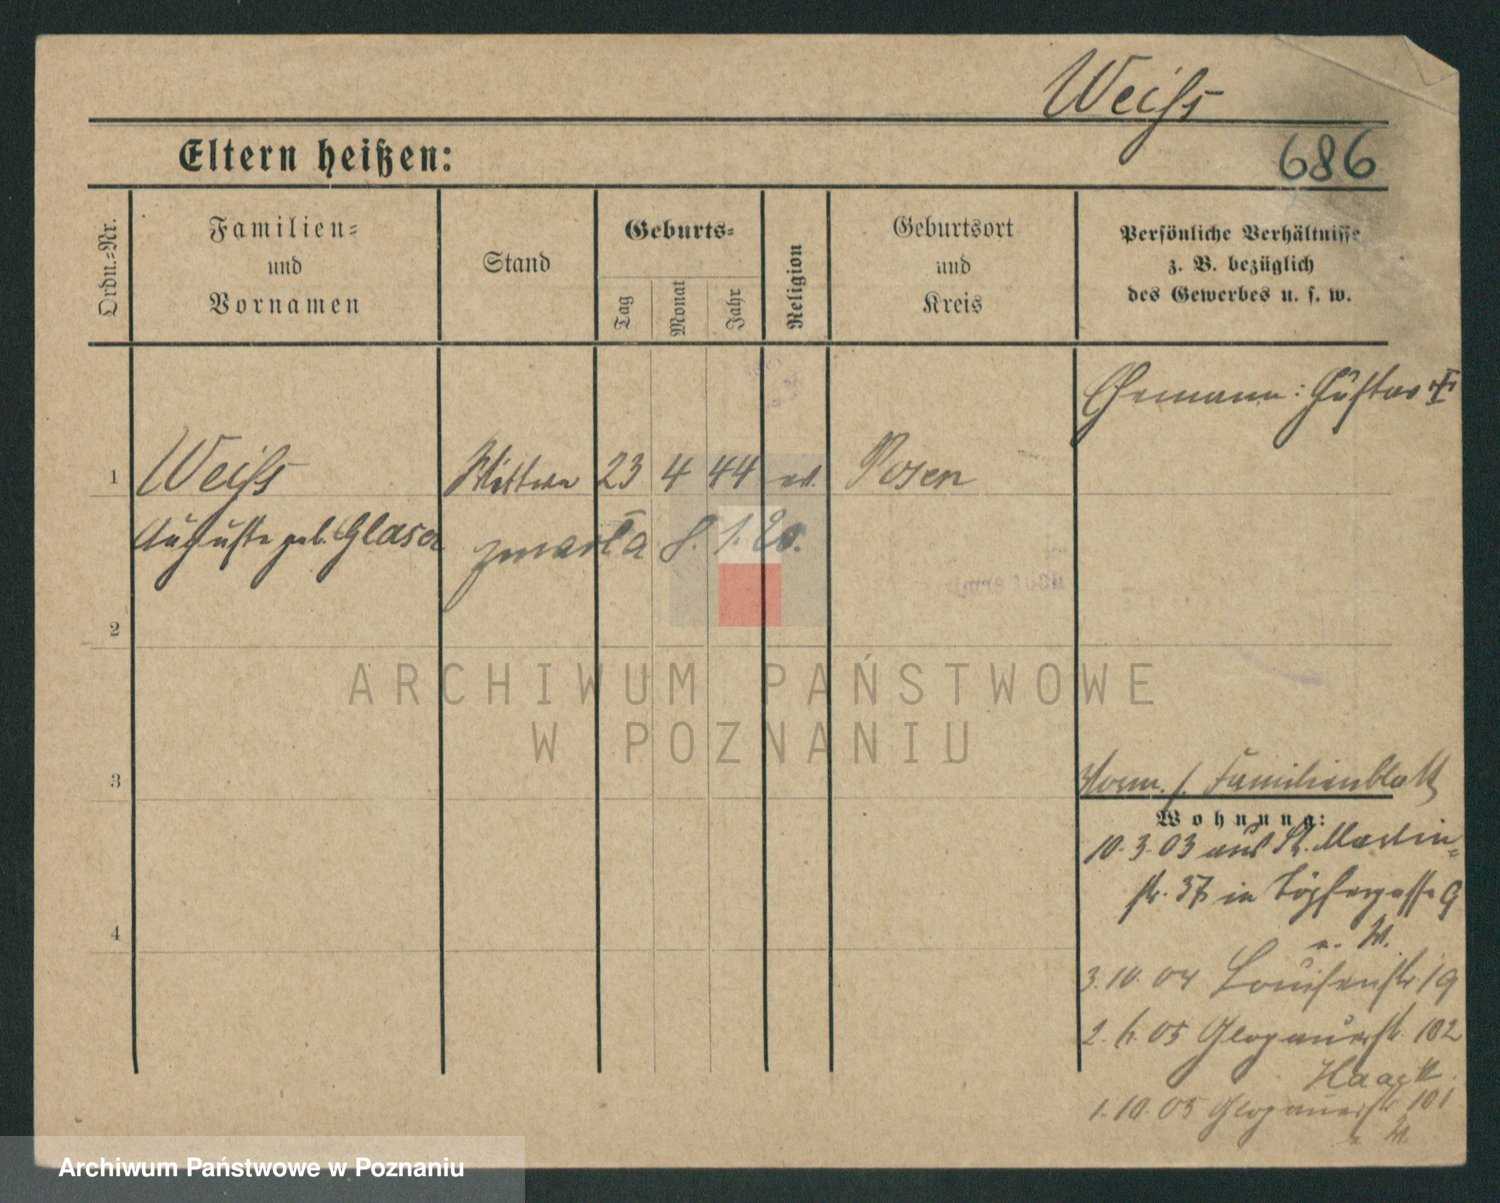 Weiſs
686
Eltern heißen:
Ordn.-Nr.
Familien-
und
Vornamen
Stand
Geburts-
Tag
Monat
Jahr
Religion
Geburtsort
und
Kreis
Persönliche Verhältnisse
z. B. bezüglich
des Gewerbes u. s. w.
Ehemann: Gustav †
1 Weiſs Wittwe 23 4 44 ev. Posen
Auguste geb. Glaser
zmarła 8. 1. 20.
2
3
Vorm. s. Familienblatt
Wohnung:
10. 3. 03 aus St. Martin-
str. 37 in Töpfergasse 9
4
3. 10. 04 Louisenstr 19
05 Glogauerstr. 102
Haack
1. 10. 05 Glogauerstr 101
ARCHIWUM PAŃSTWOWE
W POZNANIU
Archiwum Państwowe w Poznaniu